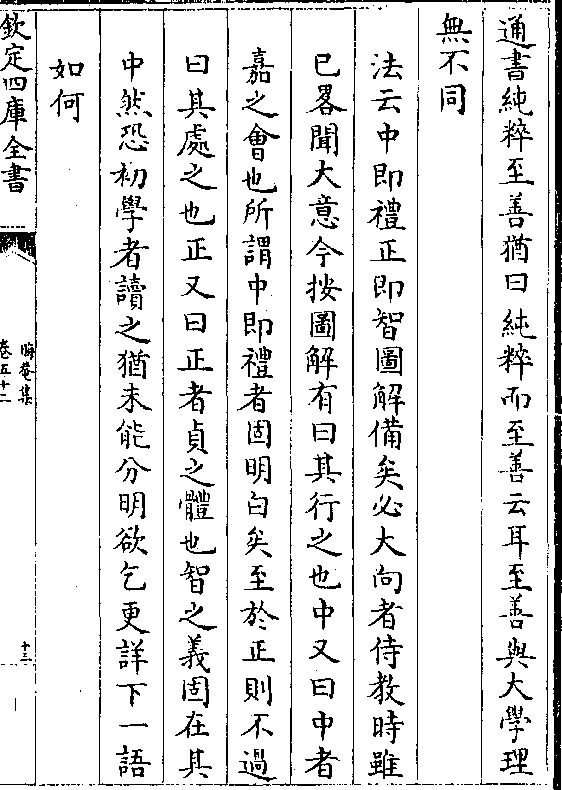 通書純粹至善猶曰純粹而至善云耳至善與大學理
無不同
法云中即禮正即智圖解備矣必大向者侍教時雖
已畧聞大意今按圖解有曰其行之也中又曰中者
嘉之會也所謂中即禮者固明白矣至於正則不過
曰其處之也正又曰正者貞之體也智之義固在其
中然恐初學者讀之猶未能分明欲乞更詳下一語
如何
欽定四庫全書
晦菴集
卷五十二
十三